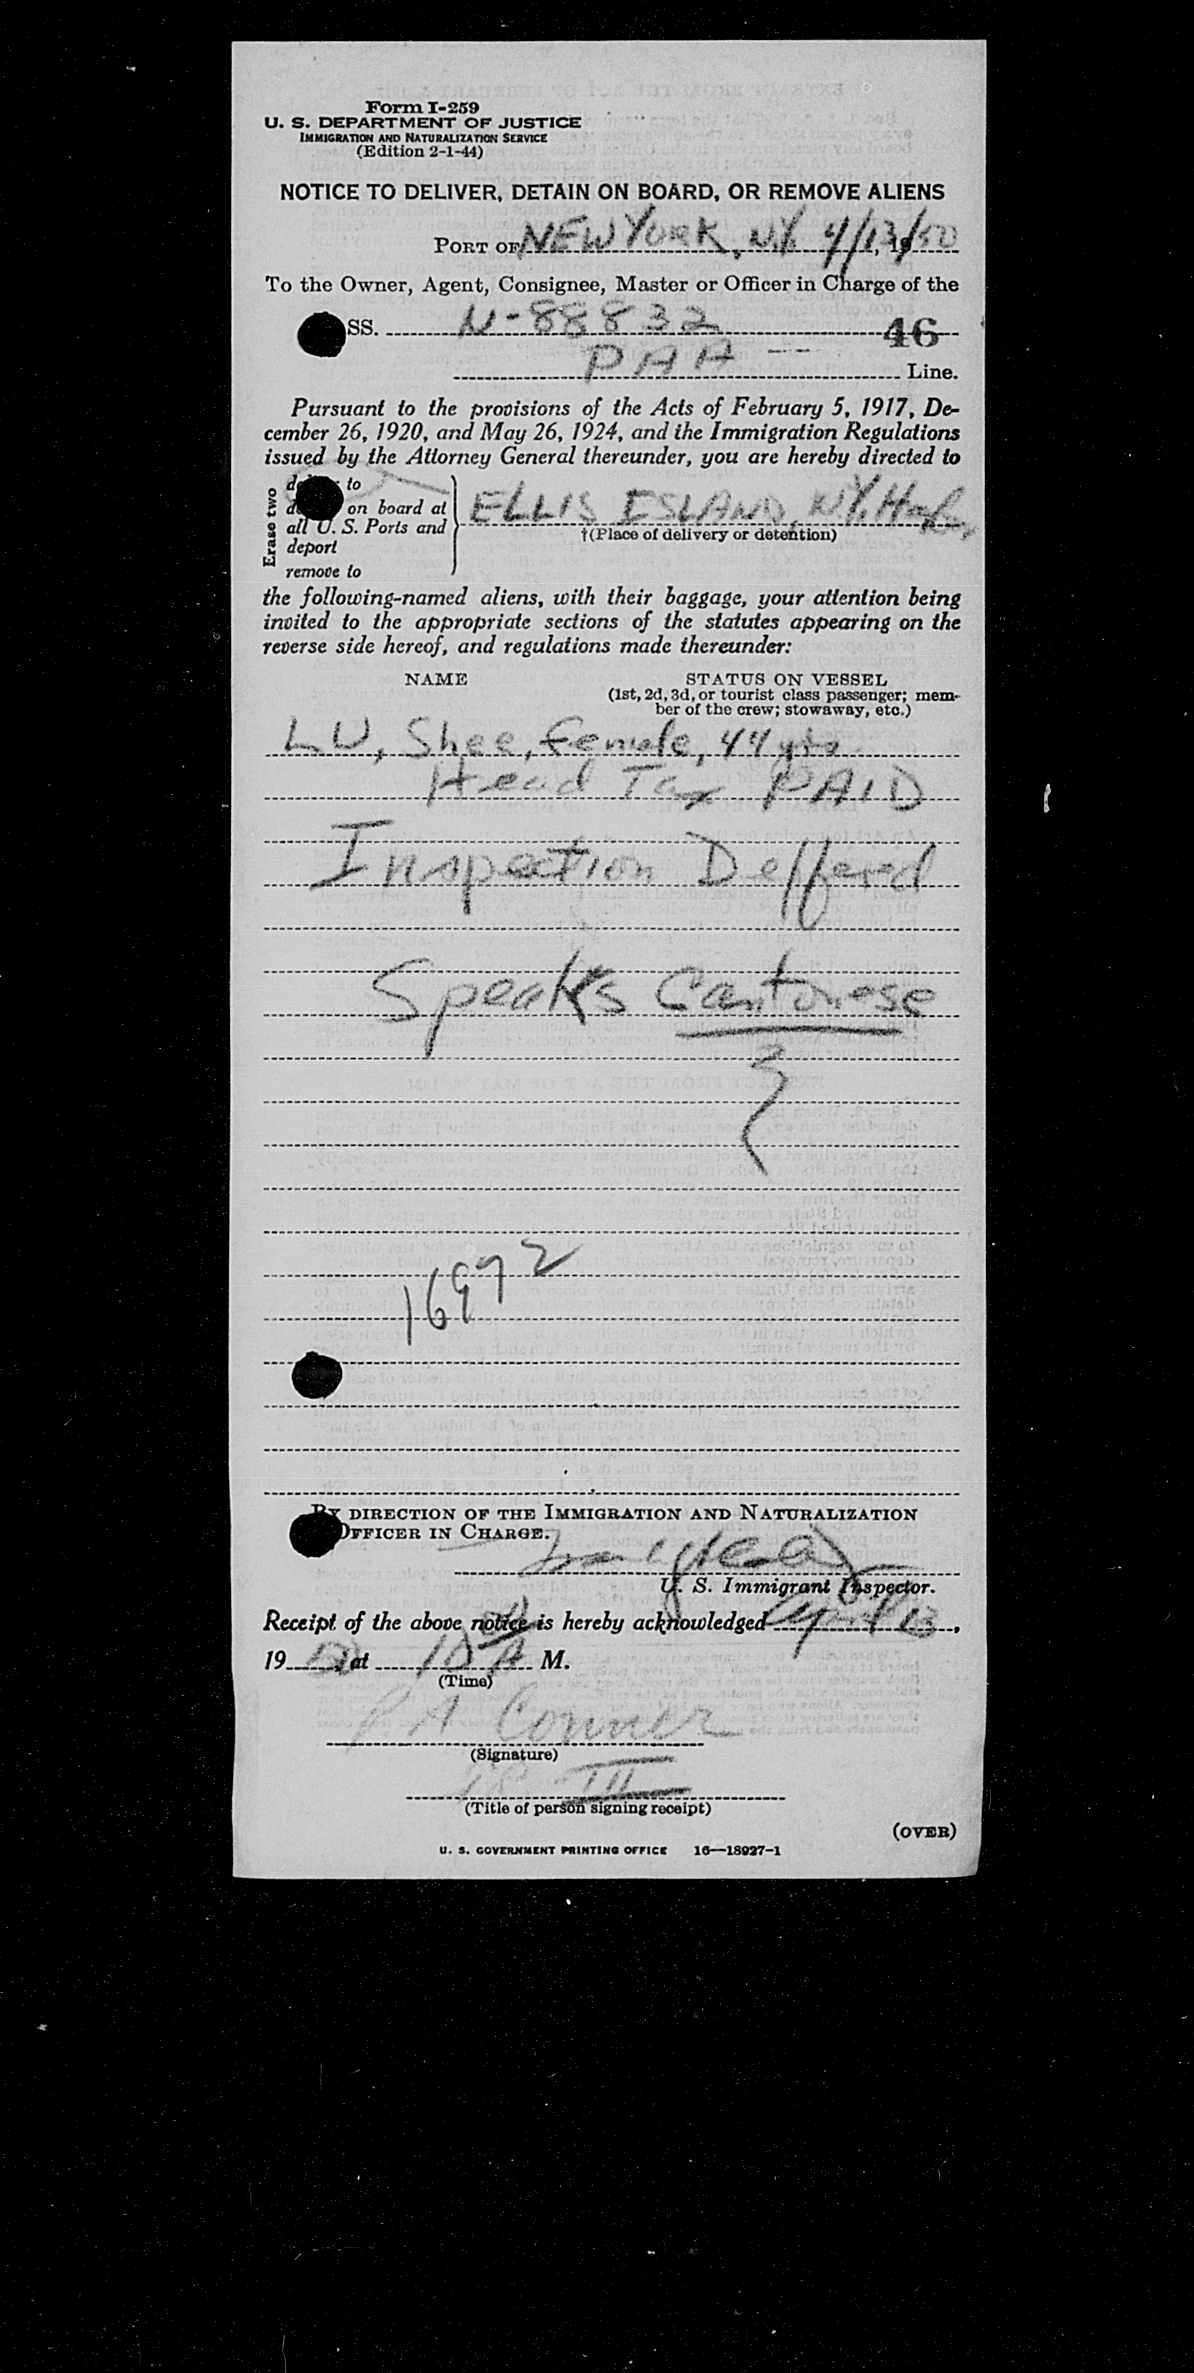 Form I-259
U. S. DEPARTMENT OF JUSTICE
IMMIGRATION AND NATURALIZATION SERVICE
(Edition 2-1-44)
NOTICE TO DELIVER, DETAIN ON BOARD, OR REMOVE ALIENS
PORT OF NEW YORK, N.Y. 4/13/50, 19
To the Owner, Agent, Consignee, Master or Officer in Charge of the
SS. N-88832 46
PAA Line.
Pursuant to the provisions of the Acts of February 5, 1917, De-
cember 26, 1920, and May 26, 1924, and the Immigration Regulations
issued by the Attorney General thereunder, you are hereby directed to
Erase two
to
on board at
all U. S. Ports and
deport
remove to
ELLIS ISLAND, N.Y.
†(Place of delivery or detention)
the following-named aliens, with their baggage, your attention being
invited to the appropriate sections of the statutes appearing on the
reverse side hereof, and regulations made thereunder:
NAME STATUS ON VESSEL
(1st, 2d, 3d, or tourist class passenger; mem-
ber of the crew; stowaway, etc.)
LU, Shee, female, 44 yrs.
Head Tax PAID
Inspection Deffered
Speaks Cantonese
16972
BY DIRECTION OF THE IMMIGRATION AND NATURALIZATION
OFFICER IN CHARGE.
U. S. Immigrant Inspector.
Receipt of the above notice is hereby acknowledged April 13,
1950, at 10 A M.
(Time)
P A Conner
(Signature)
III
(Title of person signing receipt)
(OVER)
U. S. GOVERNMENT PRINTING OFFICE 16—18927-1